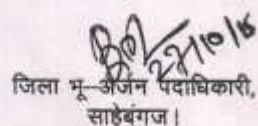 27/10/15
जिला भू-अर्जन पदाधिकारी,
साहेबगंज।